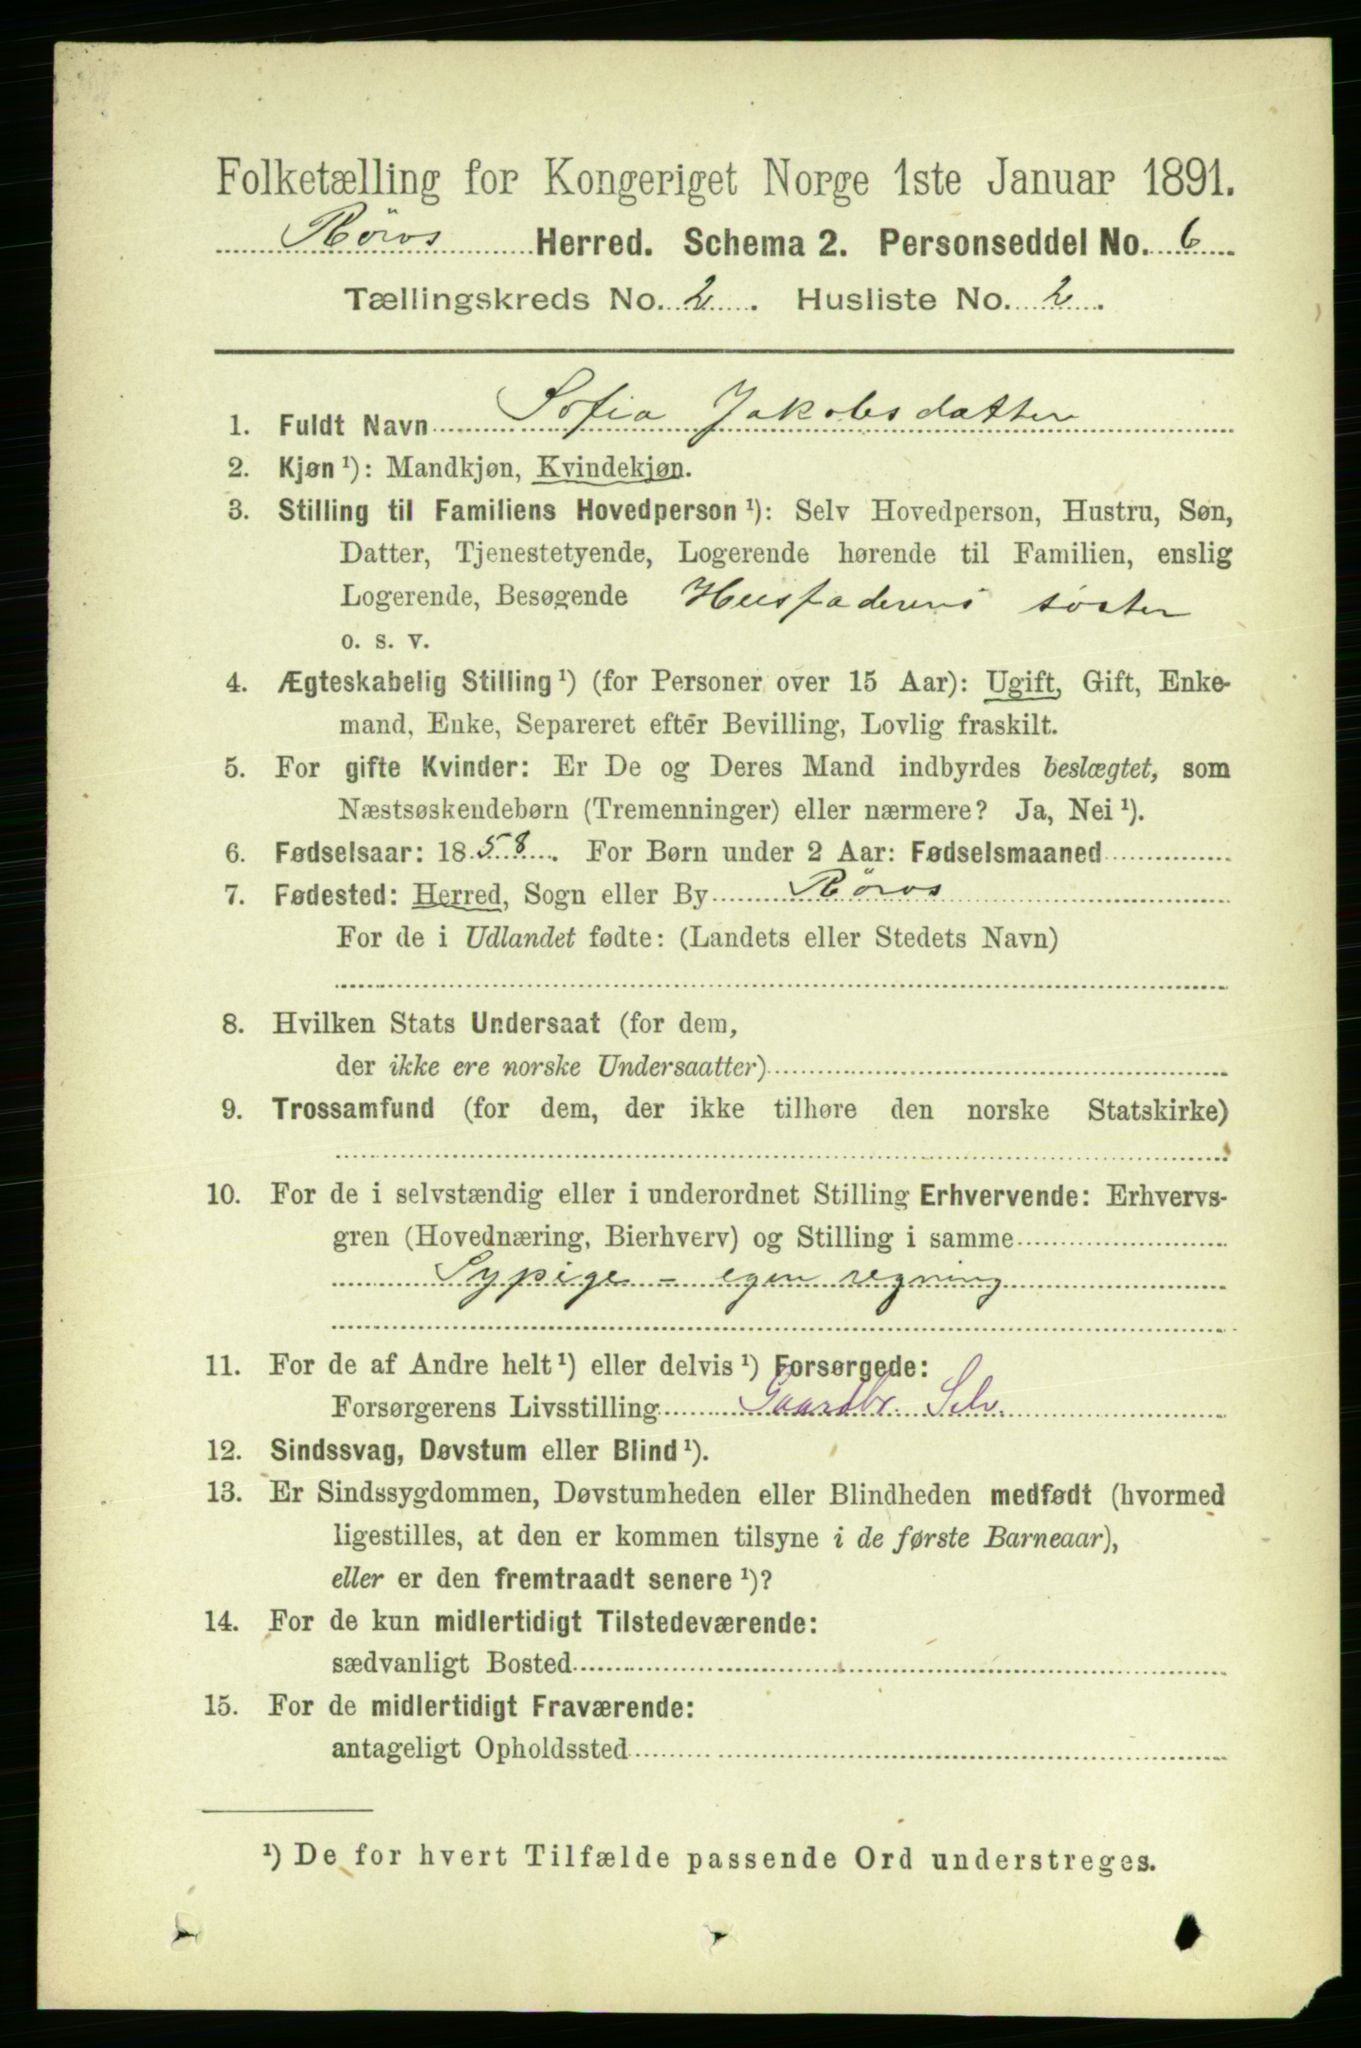 Folketælling for Kongeriget Norge 1ste Januar 1891.
Röros Herred. Schema 2. Personseddel No. 6
Tællingskreds No. 2. Husliste No. 2.
1. Fuldt Navn Sofia Jakobsdatter
2. Kjøn ¹): Mandkjøn, Kvindekjøn.
3. Stilling til Familiens Hovedperson ¹): Selv Hovedperson, Hustru, Søn,
Datter, Tjenestetyende, Logerende hørende til Familien, enslig
Logerende, Besøgende Husfaderens søster
o. s. v.
4. Ægteskabelig Stilling ¹) (for Personer over 15 Aar): Ugift, Gift, Enke-
mand, Enke, Separeret efter Bevilling, Lovlig fraskilt.
5. For gifte Kvinder: Er De og Deres Mand indbyrdes beslægtet, som
Næstsøskendebørn (Tremenninger) eller nærmere? Ja, Nei ¹).
6. Fødselsaar: 1858. For Børn under 2 Aar: Fødselsmaaned
7. Fødested: Herred, Sogn eller By Röros
For de i Udlandet fødte: (Landets eller Stedets Navn)
8. Hvilken Stats Undersaat (for dem,
der ikke ere norske Undersaatter)
9. Trossamfund (for dem, der ikke tilhøre den norske Statskirke)
10. For de i selvstændig eller i underordnet Stilling Erhvervende: Erhvervs-
gren (Hovednæring, Bierhverv) og Stilling i samme
Sypige - egen regning
11. For de af Andre helt ¹) eller delvis ¹) Forsørgede:
Forsørgerens Livsstilling Gaardbr. Selv.
12. Sindssvag, Døvstum eller Blind ¹).
13. Er Sindssygdommen, Døvstumheden eller Blindheden medfødt (hvormed
ligestilles, at den er kommen tilsyne i de første Barneaar),
eller er den fremtraadt senere ¹)?
14. For de kun midlertidigt Tilstedeværende:
sædvanligt Bosted
15. For de midlertidigt Fraværende:
antageligt Opholdssted
¹) De for hvert Tilfælde passende Ord understreges.